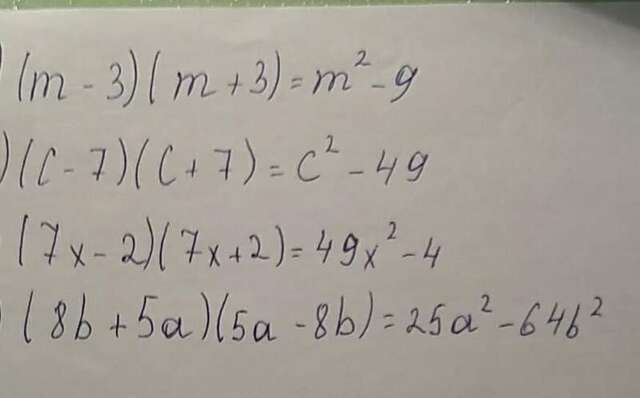 ) (m - 3)(m + 3) = m² - 9
) (c - 7)(c + 7) = c² - 49
(7x - 2)(7x + 2) = 49x² - 4
) (8b + 5a)(5a - 8b) = 25a² - 64b²